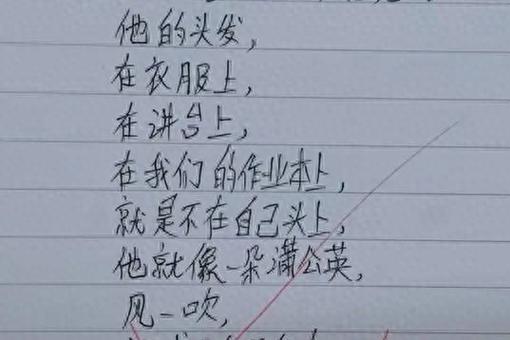 他的头发,
在衣服上,
在讲台上,
在我们的作业本上,
就是不在自己头上,
他就像一朵蒲公英,
风一吹,